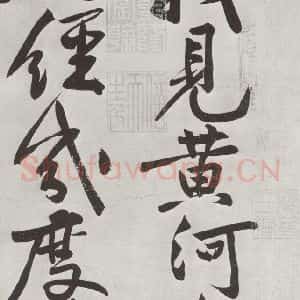 見黃河
經幾度
Shufawang.CN